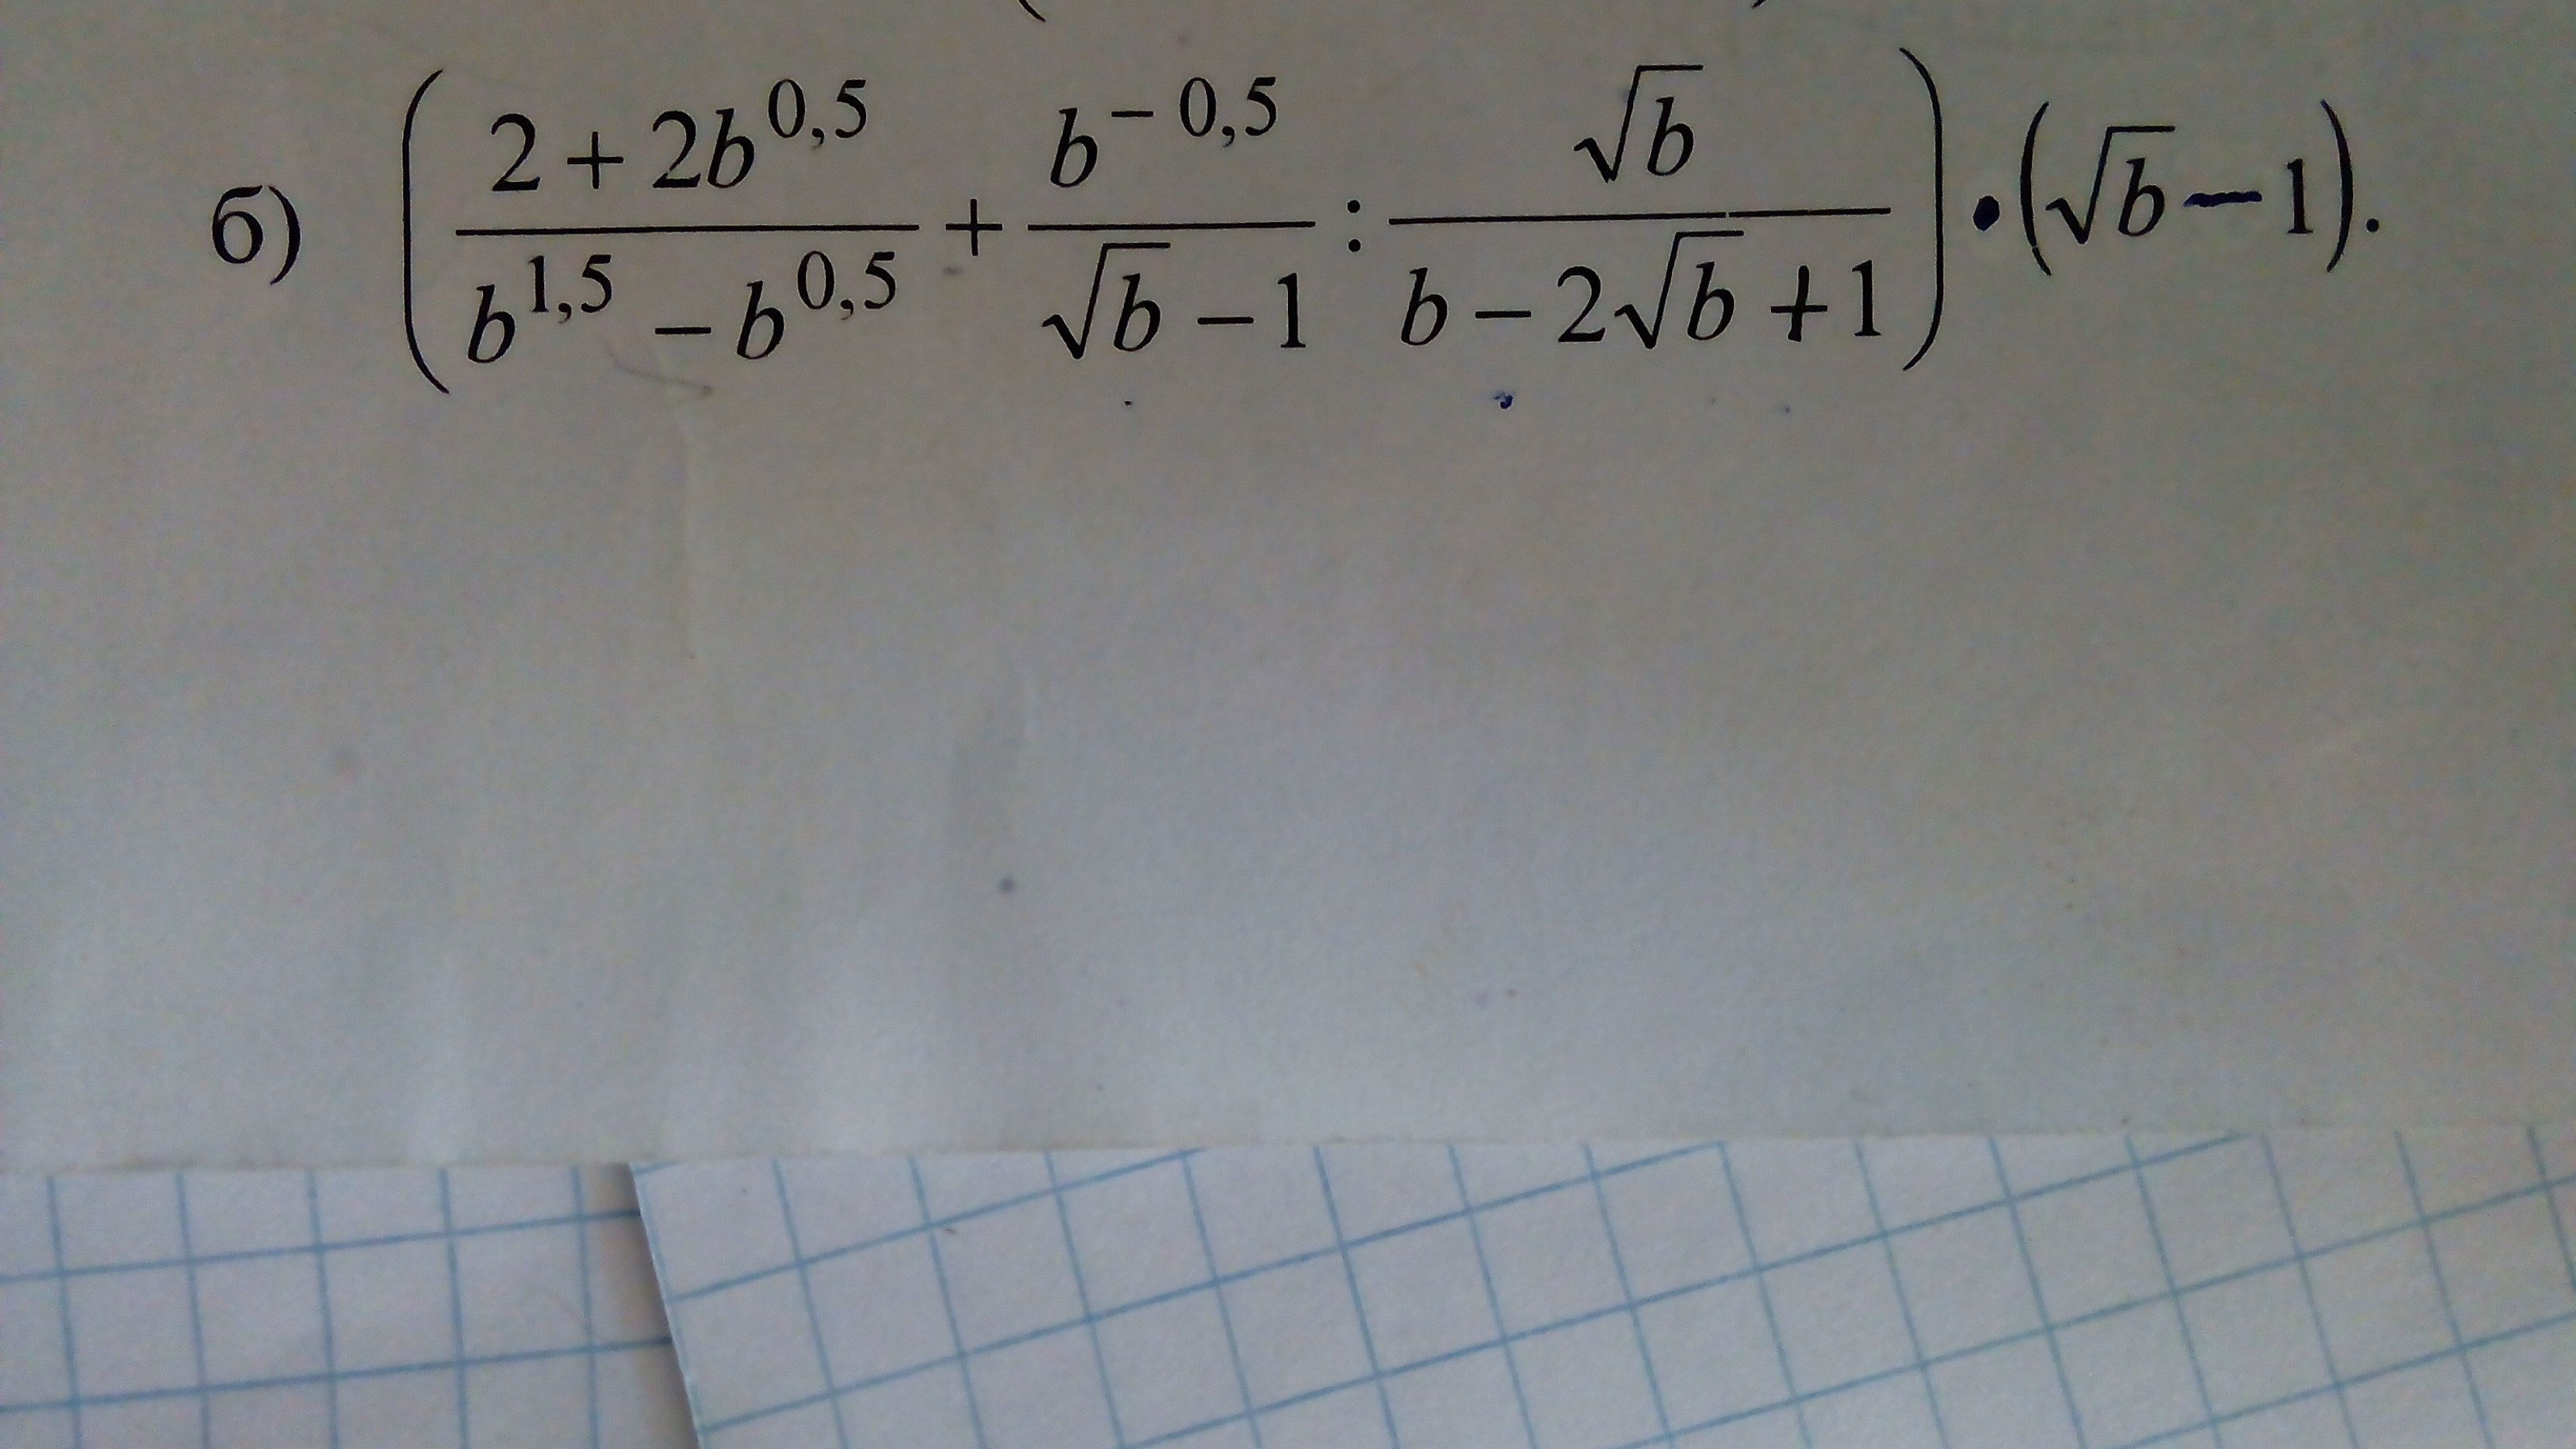 б) $\left(\frac{2+2b^{0,5}}{b^{1,5}-b^{0,5}}+\frac{b^{-0,5}}{\sqrt{b}-1}:\frac{\sqrt{b}}{b-2\sqrt{b}+1}\right)\bullet(\sqrt{b}-1).$